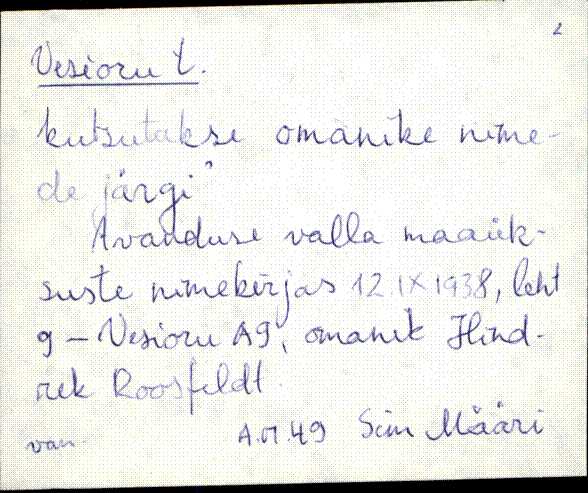 2
Vesioru t.
kutsutakse omanike nime-
de järgi
Avanduse valla maaük-
suste nimekirjas 12.IX 1938, leht
9 – Vesioru A9, omanik Hind-
rek Roosfeldt.
van. Siim Määri